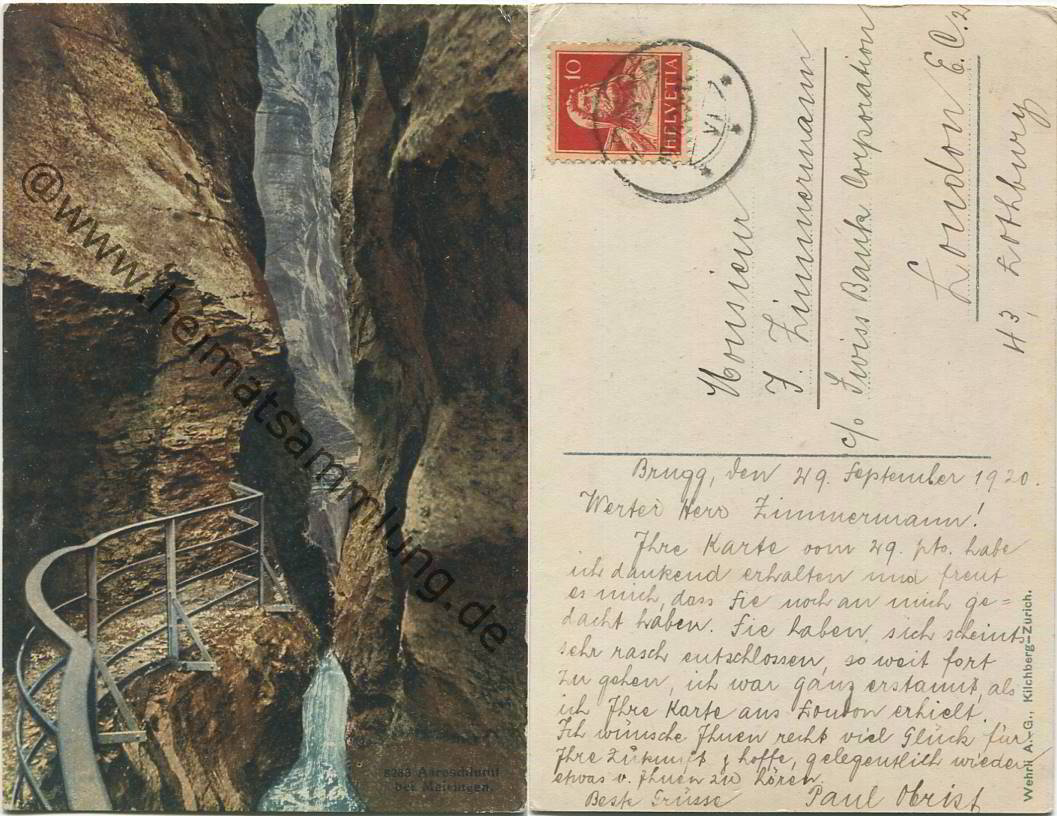 @www.heimatsammlung.de
8283 Aareschlucht
bei Meiringen.
10
HELVETIA
VI
Monsieur
J. Zimmermann
c/o Swiss Bank Corporation
London E.C.2
43, Lothbury
Brugg, den 29. September 1920.
Werter Herr Zimmermann!
Ihre Karte vom 29. pto. habe
ich dankend erhalten und freut
es mich, dass Sie noch an mich ge=
dacht haben. Sie haben, sich scheints,
sehr rasch entschlossen, so weit fort
zu gehen, ich war ganz erstaunt, als
ich Ihre Karte aus London erhielt.
Ich wünsche Ihnen recht viel Glück für
Ihre Zukunft & hoffe, gelegentlich wieder
etwas v. Ihnen zu hören.
Beste Grüsse Paul Obrist
Wehrli A.-G., Kilchberg-Zürich.